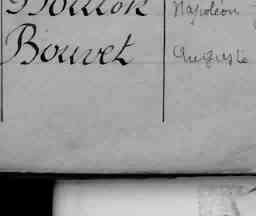 Napoléon
Bouvet Auguste